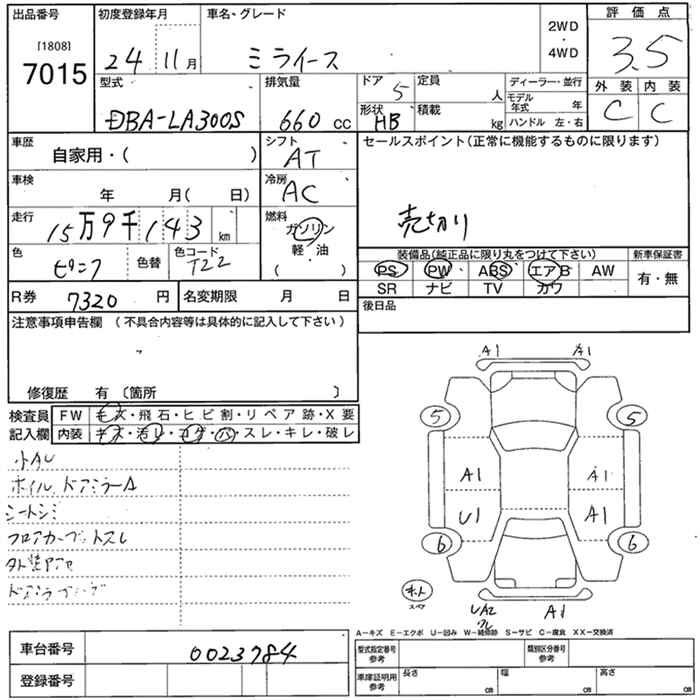 出品番号 初度登録年月 車名・グレード 評価点
[1808]
7015
24年11月 ミライース
2WD
・
4WD
3.5
型式 排気量 ドア 5 定員 人 ディーラー・並行 外装 内装
DBA-LA300S 660 cc
形状 HB 積載 kg モデル年式 年
ハンドル 左・右
C C
車歴 自家用・( ) シフト AT セールスポイント(正常に機能するものに限ります)
車検 年 月( 日) 冷房 AC
売切り
走行 15万9千143 km 燃料 ガソリン 軽・油 ( )
色 ピンク 色替 色コード T22
装備品(純正品に限り丸をつけて下さい) 新車保証書
PS PW ABS エアB AW 有・無
SR ナビ TV カワ
R券 7320 円 名変期限 月 日 後日品
注意事項申告欄 (不具合内容等は具体的に記入して下さい)
修復歴 有 〔箇所 〕
検査員 FW キズ・飛石・ヒビ割・リペア跡・X要
記入欄 内装 キズ・汚レ・コゲ・ハ・スレ・キレ・破レ
小AU
ホイル、ドアミラーA
シートシミ
フロアカーペットスレ
A1 A1
5 5
A1 A1
U1 A1
6 6
UA2 A1
A-キズ E-エクボ U-凹み W-補修跡 S-サビ C-腐食 XX-交換済
車台番号 0023784
登録番号
型式指定番号 参考 類別区分番号 参考
車庫証明用 参考 長さ cm 幅 cm 高さ cm